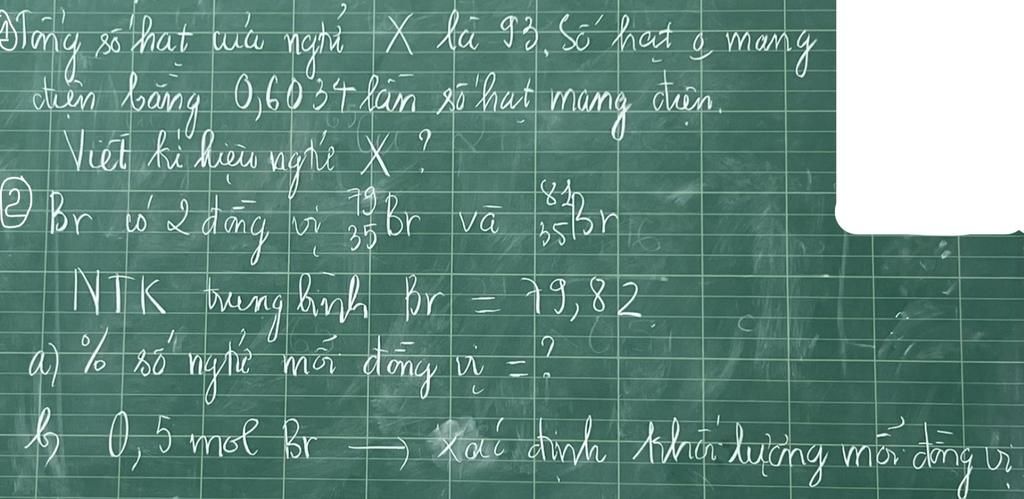 ① Tổng số hạt của ngtử X là 93. Số hạt ọ mang
điện bằng 0,6034 lần số hạt mang điện.
Viết kí hiệu ngtử X ?
② Br có 2 đồng vị ⁷⁹₃₅Br và ⁸¹₃₅Br
NTK trung bình Br = 79,82.
a) % số ngtử mỗi đồng vị = ?
b) 0,5 mol Br → Xác định khối lượng mỗi đồng vị